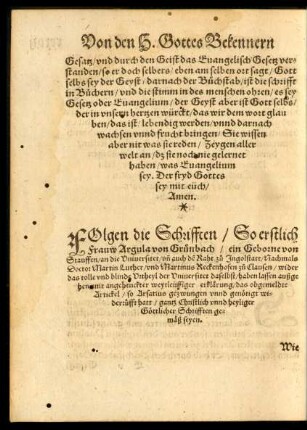 Von den H. Gottes Bekennern
Gesatz/ vnd durch den Geist das Euangelisch Gesetz ver-
standen/ so er doch selbers/ eben am selben ort sagt/ Gott
selbs sey der Geyst/ darnach der Buͦchstab/ ist die schrifft
in Buͤchern/ vnd die stimm in des menschen ohren/ es sey
Gesetz oder Euangelium/ der Geyst aber ist Gott selbs/
der in vnsern hertzen würckt/ das wir dem wort glau
ben/ das ist/ lebendig werden/ vnnd darnach
wachsen vnnd frucht bringen/ Sie wissen
aber nit was sie reden/ Zeygen aller
welt an/ dz sie noch nie gelernet
haben/ was Euangelium
sey. Der fryd Gottes
sey mit eüch/
Amen.
*
Folgen die Schrifften/ So erstlich
Frauw Argula von Grünbach/ ein Geborne von
Stauffen/ an die Vniuersitet/ vn̄ auch dē Raht zu Ingolstatt/ Nachmals
Doctor Martin Luther/ vnd Martinus Reckenhofen zu Clausen/ wider
das tolle vnd blind Vrtheyl der Vniuersitet daselbst/ haben lassen außge
hen/ mit angehenckter weytleüffiger erklärung/ das obgemelter
Artickel/ so Arsatius gezwungen vnnd genötigt wi-
derrüfft hat/ gantz Christlich vnnd heyliger
Göttlicher Schrifften ge-
mäß seyen.
Wie